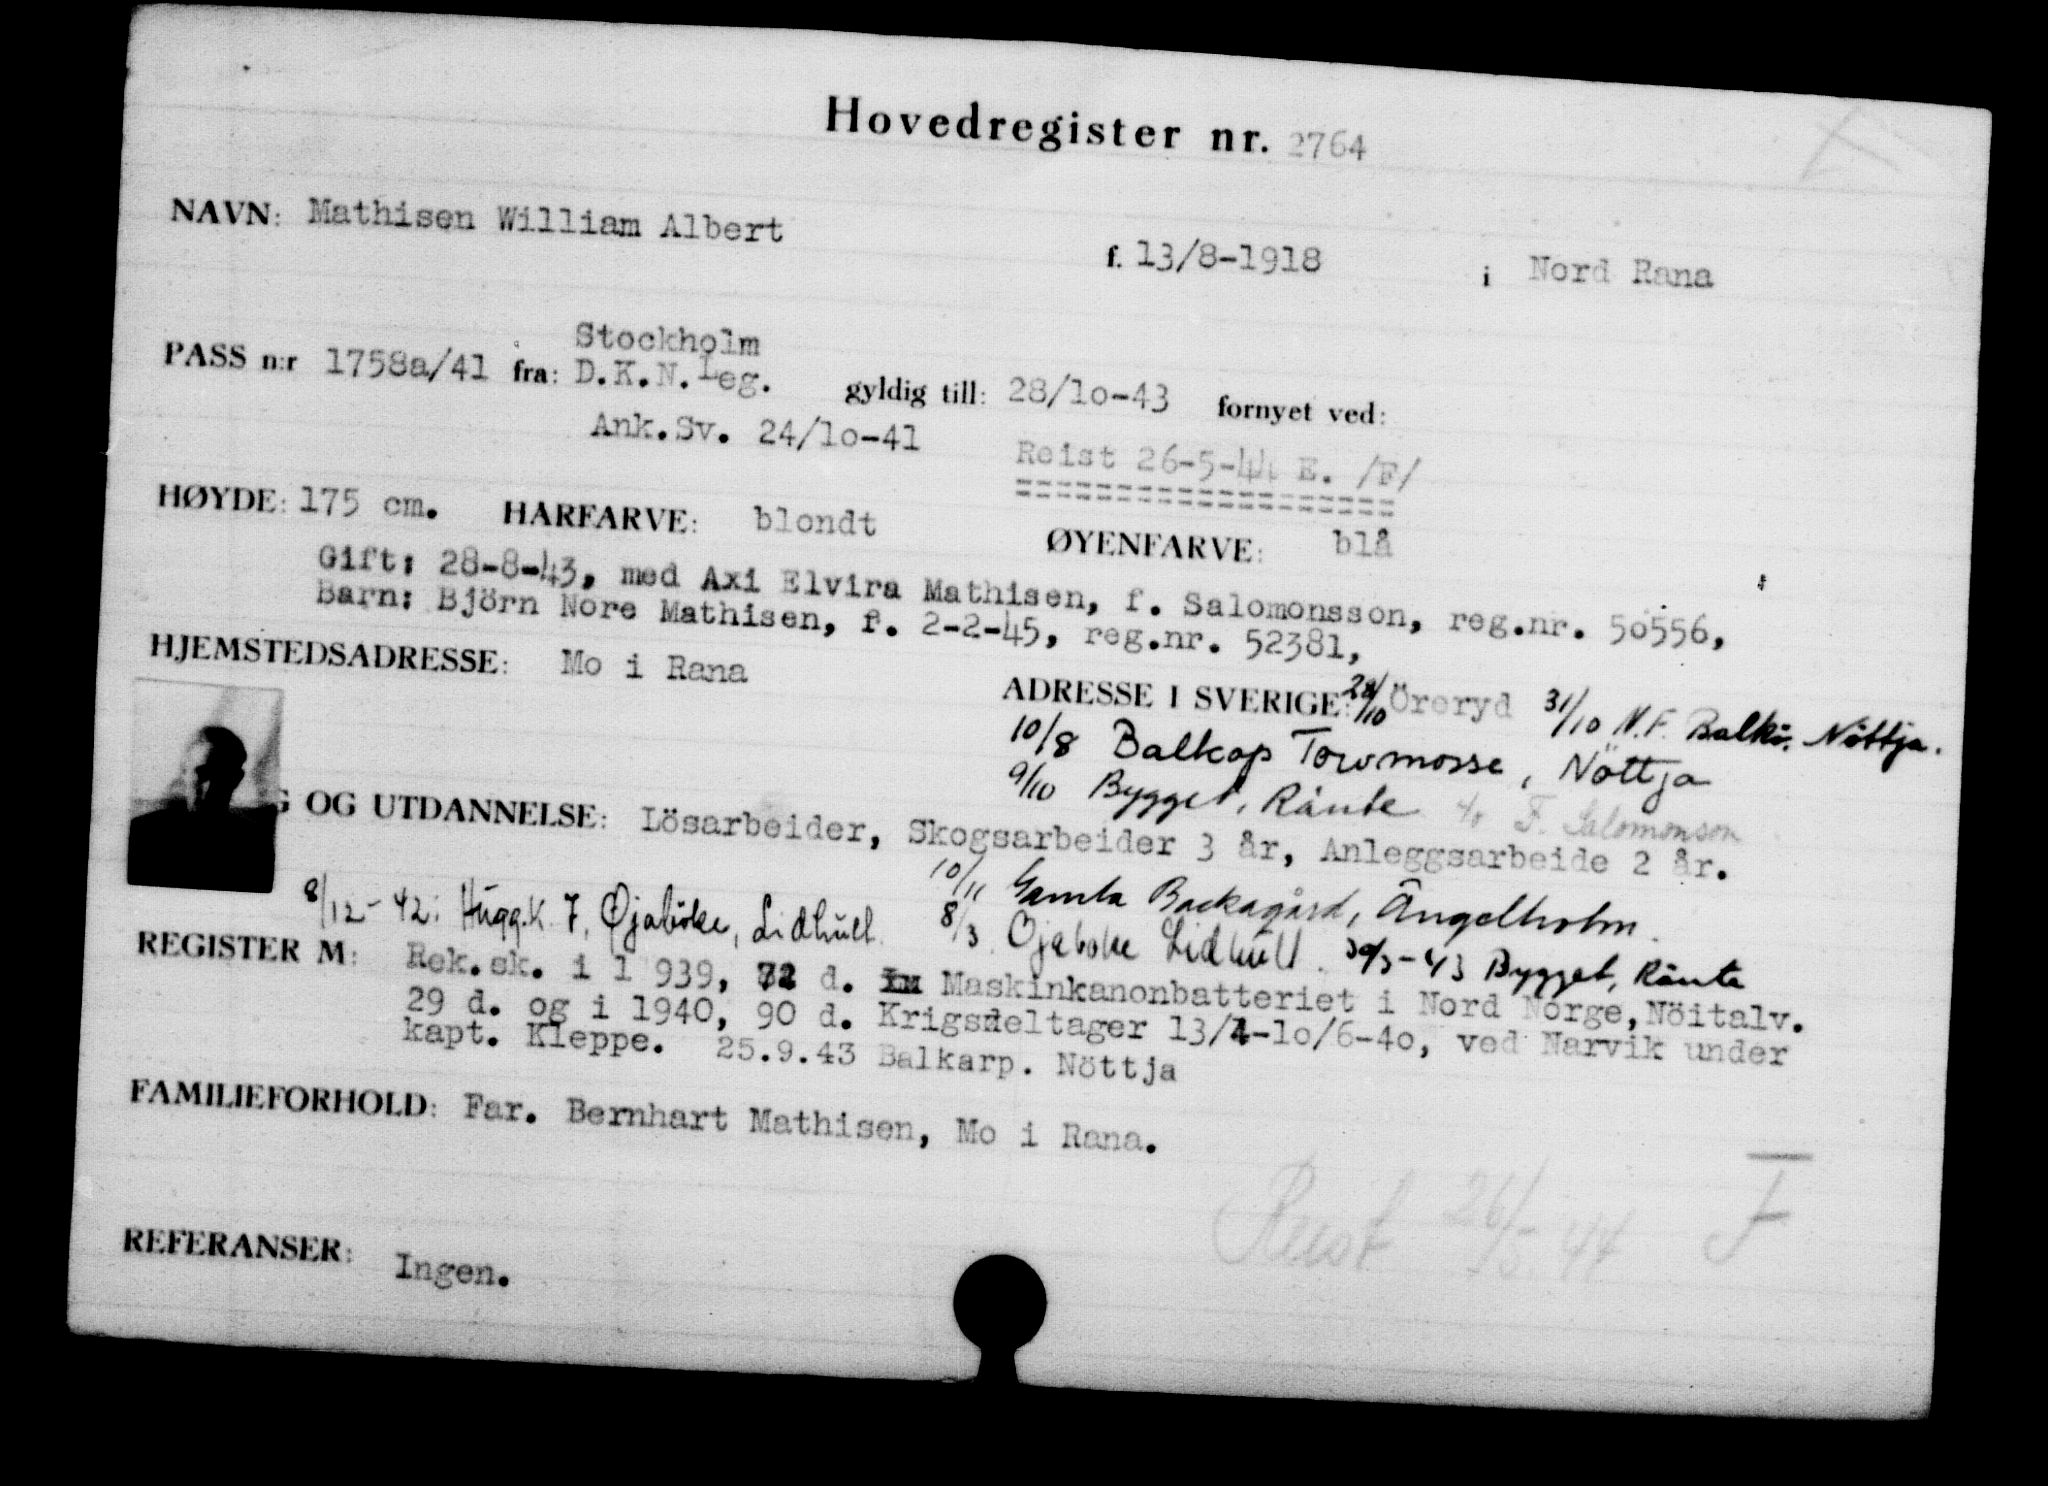 Hovedregister nr. 2764
NAVN: Mathisen William Albert f. 13/8-1918 i Nord Rana
Stockholm
PASS n:r 1758a/41 fra: D.K.N.Leg. gyldig till: 28/1o-43 fornyet ved:
Ank.Sv. 24/1o-41
Reist 26-5-44 E. /F/
HØYDE: 175 cm. HARFARVE: blondt ØYENFARVE: blå
Gift: 28-8-43, med Axi Elvira Mathisen, f. Salomonsson, reg.nr. 50556,
Barn: Björn Nore Mathisen, f. 2-2-45, reg.nr. 52381,
HJEMSTEDSADRESSE: Mo i Rana
ADRESSE I SVERIGE: 28/10 Öreryd 31/10 N.F. Balkö. Nöttja.
10/8 Balkop Torvmosse, Nöttja
9/10 Bygget, Rånte F. Salomonson
G OG UTDANNELSE: Lösarbeider, Skogsarbeider 3 år, Anleggsarbeide 2 år.
10/11 Gamla Backagård, Ängelholm.
8/12-42: Hugg.K. 7, Öjaböke, Lidhult. 8/3 Öjaboke Lidhult. 30/3-43 Bygget, Rånte
REGISTER M: Rek.sk. i 1 939, 72 d. Maskinkanonbatteriet i Nord Norge, Nöitalv.
29 d. og i 1940, 90 d. Krigsdeltager 13/4-1o/6-4o, ved Narvik under
kapt. Kleppe. 25.9.43 Balkarp. Nöttja
FAMILIEFORHOLD: Far. Bernhart Mathisen, Mo i Rana.
Reist 26/5.44 F
REFERANSER: Ingen.